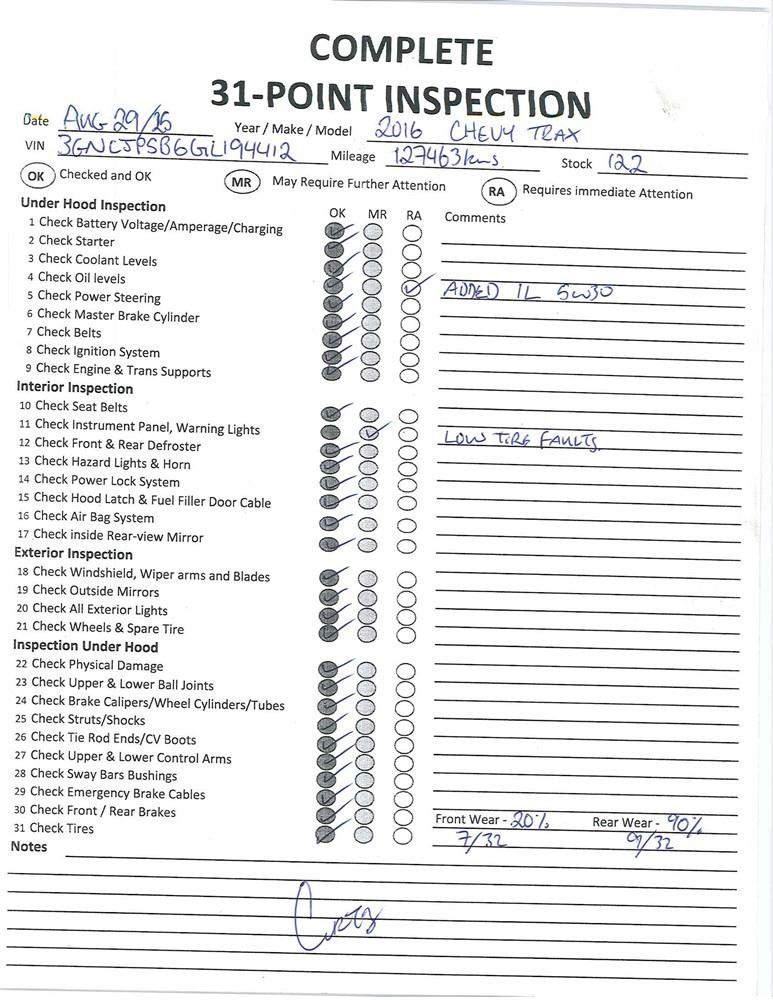 COMPLETE
31-POINT INSPECTION
Date AUG 29/25 Year / Make / Model 2016 CHEVY TRAX
VIN 3GNCJPSB6GL194412 Mileage 127463kms Stock 122
OK Checked and OK MR May Require Further Attention RA Requires immediate Attention
Under Hood Inspection OK MR RA Comments
1 Check Battery Voltage/Amperage/Charging
2 Check Starter
3 Check Coolant Levels
4 Check Oil levels ADDED 1L 5W30
5 Check Power Steering
6 Check Master Brake Cylinder
7 Check Belts
8 Check Ignition System
9 Check Engine & Trans Supports
Interior Inspection
10 Check Seat Belts
11 Check Instrument Panel, Warning Lights LOW TIRE FAULTS.
12 Check Front & Rear Defroster
13 Check Hazard Lights & Horn
14 Check Power Lock System
15 Check Hood Latch & Fuel Filler Door Cable
16 Check Air Bag System
17 Check inside Rear-view Mirror
Exterior Inspection
18 Check Windshield, Wiper arms and Blades
19 Check Outside Mirrors
20 Check All Exterior Lights
21 Check Wheels & Spare Tire
Inspection Under Hood
22 Check Physical Damage
23 Check Upper & Lower Ball Joints
24 Check Brake Calipers/Wheel Cylinders/Tubes
25 Check Struts/Shocks
26 Check Tie Rod Ends/CV Boots
27 Check Upper & Lower Control Arms
28 Check Sway Bars Bushings
29 Check Emergency Brake Cables
30 Check Front / Rear Brakes Front Wear - 20% Rear Wear - 90%
31 Check Tires 7/32 9/32
Notes